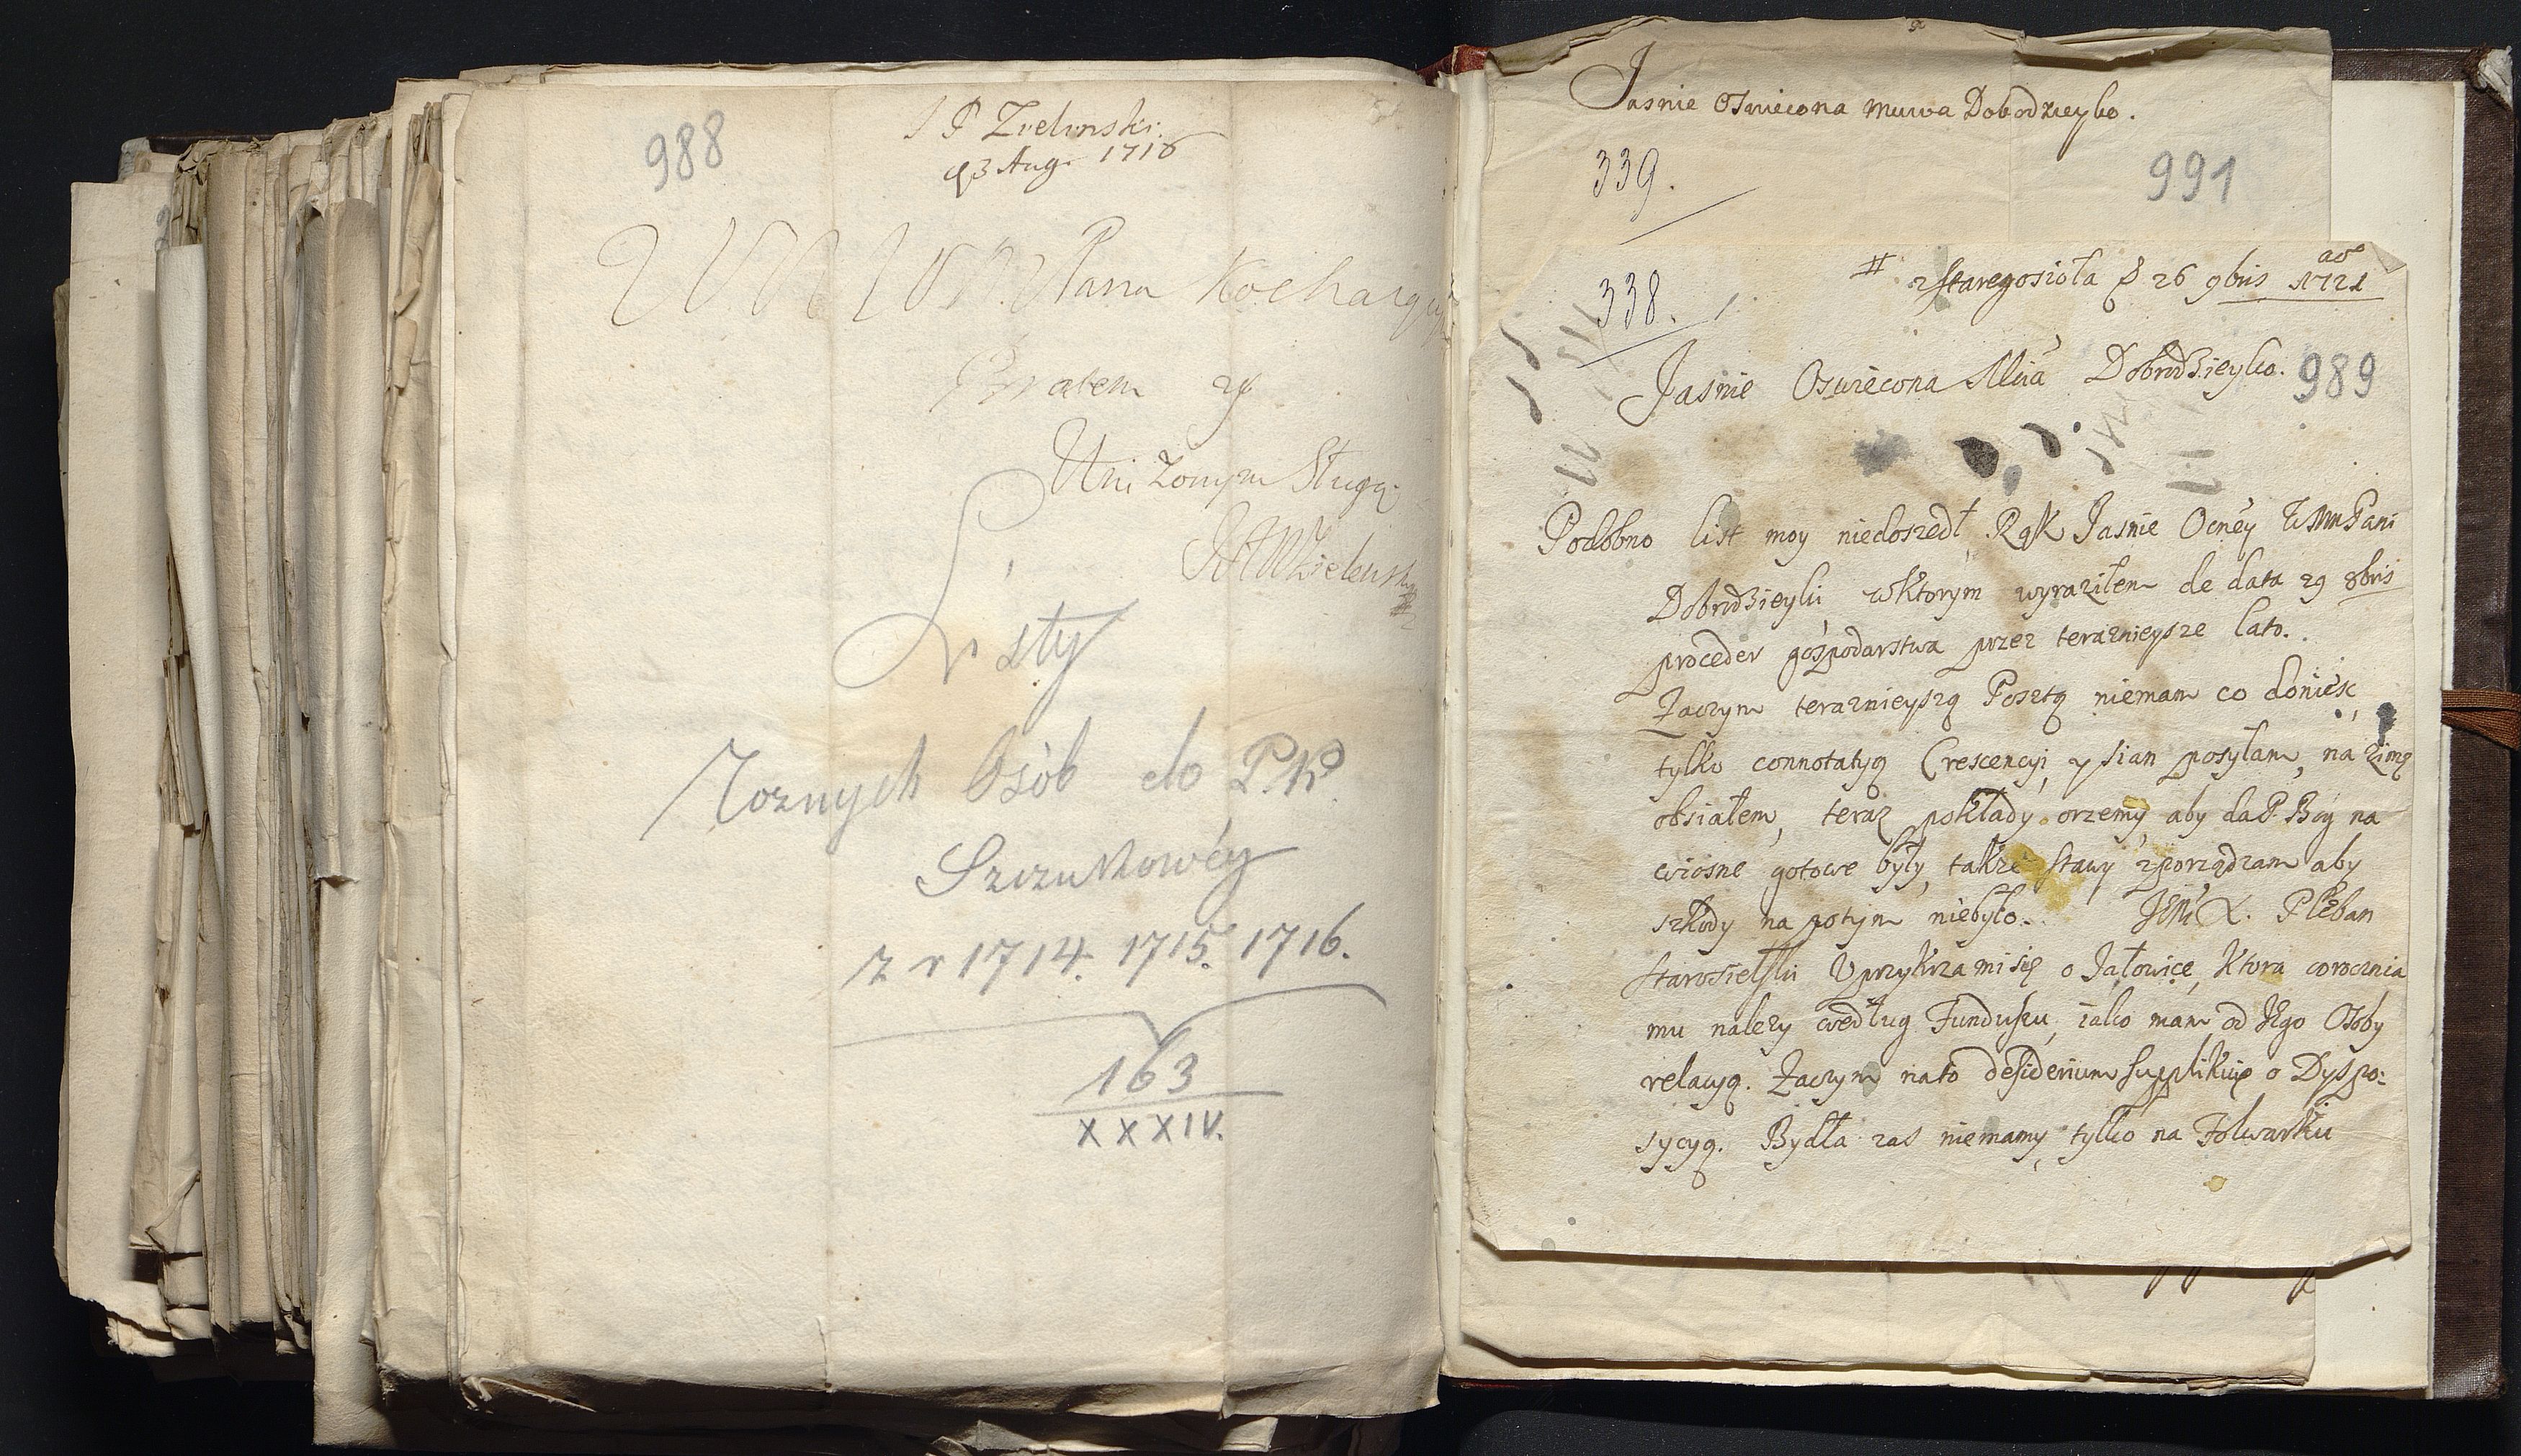 988
J P Zielinski
23 Aug. 1716
Pana Kochaiący
Bratem y
Uniżonym Sługą
Listy
Roznych Osòb do P. K.
Szczukowéy
z r 1714. 1715. 1716.
163
XXXIV.
Jasnie Oswiecona Dobodzieyko.
339.
991
338.
# z Staregosioła 26 9bris aō 1721
Jasnie Oswiecona Mćia Dobrodzieyko.
989
Podobno list moy niedoszedł Rąk Jasnie Ocney WMMPani
Dobrodzieyki, wktorym wyraziłem de data 29 8bris
proceder gospodarstwa przez teraznieysze lato.
Zaczym teraznieyszą Posztą niemam co donieść,
tylko connotatyą Crescencyi, y sian posyłam, na zimę
obsiałem, teraz pokłady orzemy, aby da P. Bóg na
wiosne gotowe były, także stawy zporządzam aby
szkody na potym niebyło. JEMć X. Pleban
Starosielski Uprzykrza mi się o Jałowicę, Ktora corocznia
mu nalezy według Funduszu, iako mam od Jego Osoby
relacyą. Zaczym nato desiderium supplikuię o Dyspo:
sycyą. Bydła zas niemamy, tylko na Folwarku